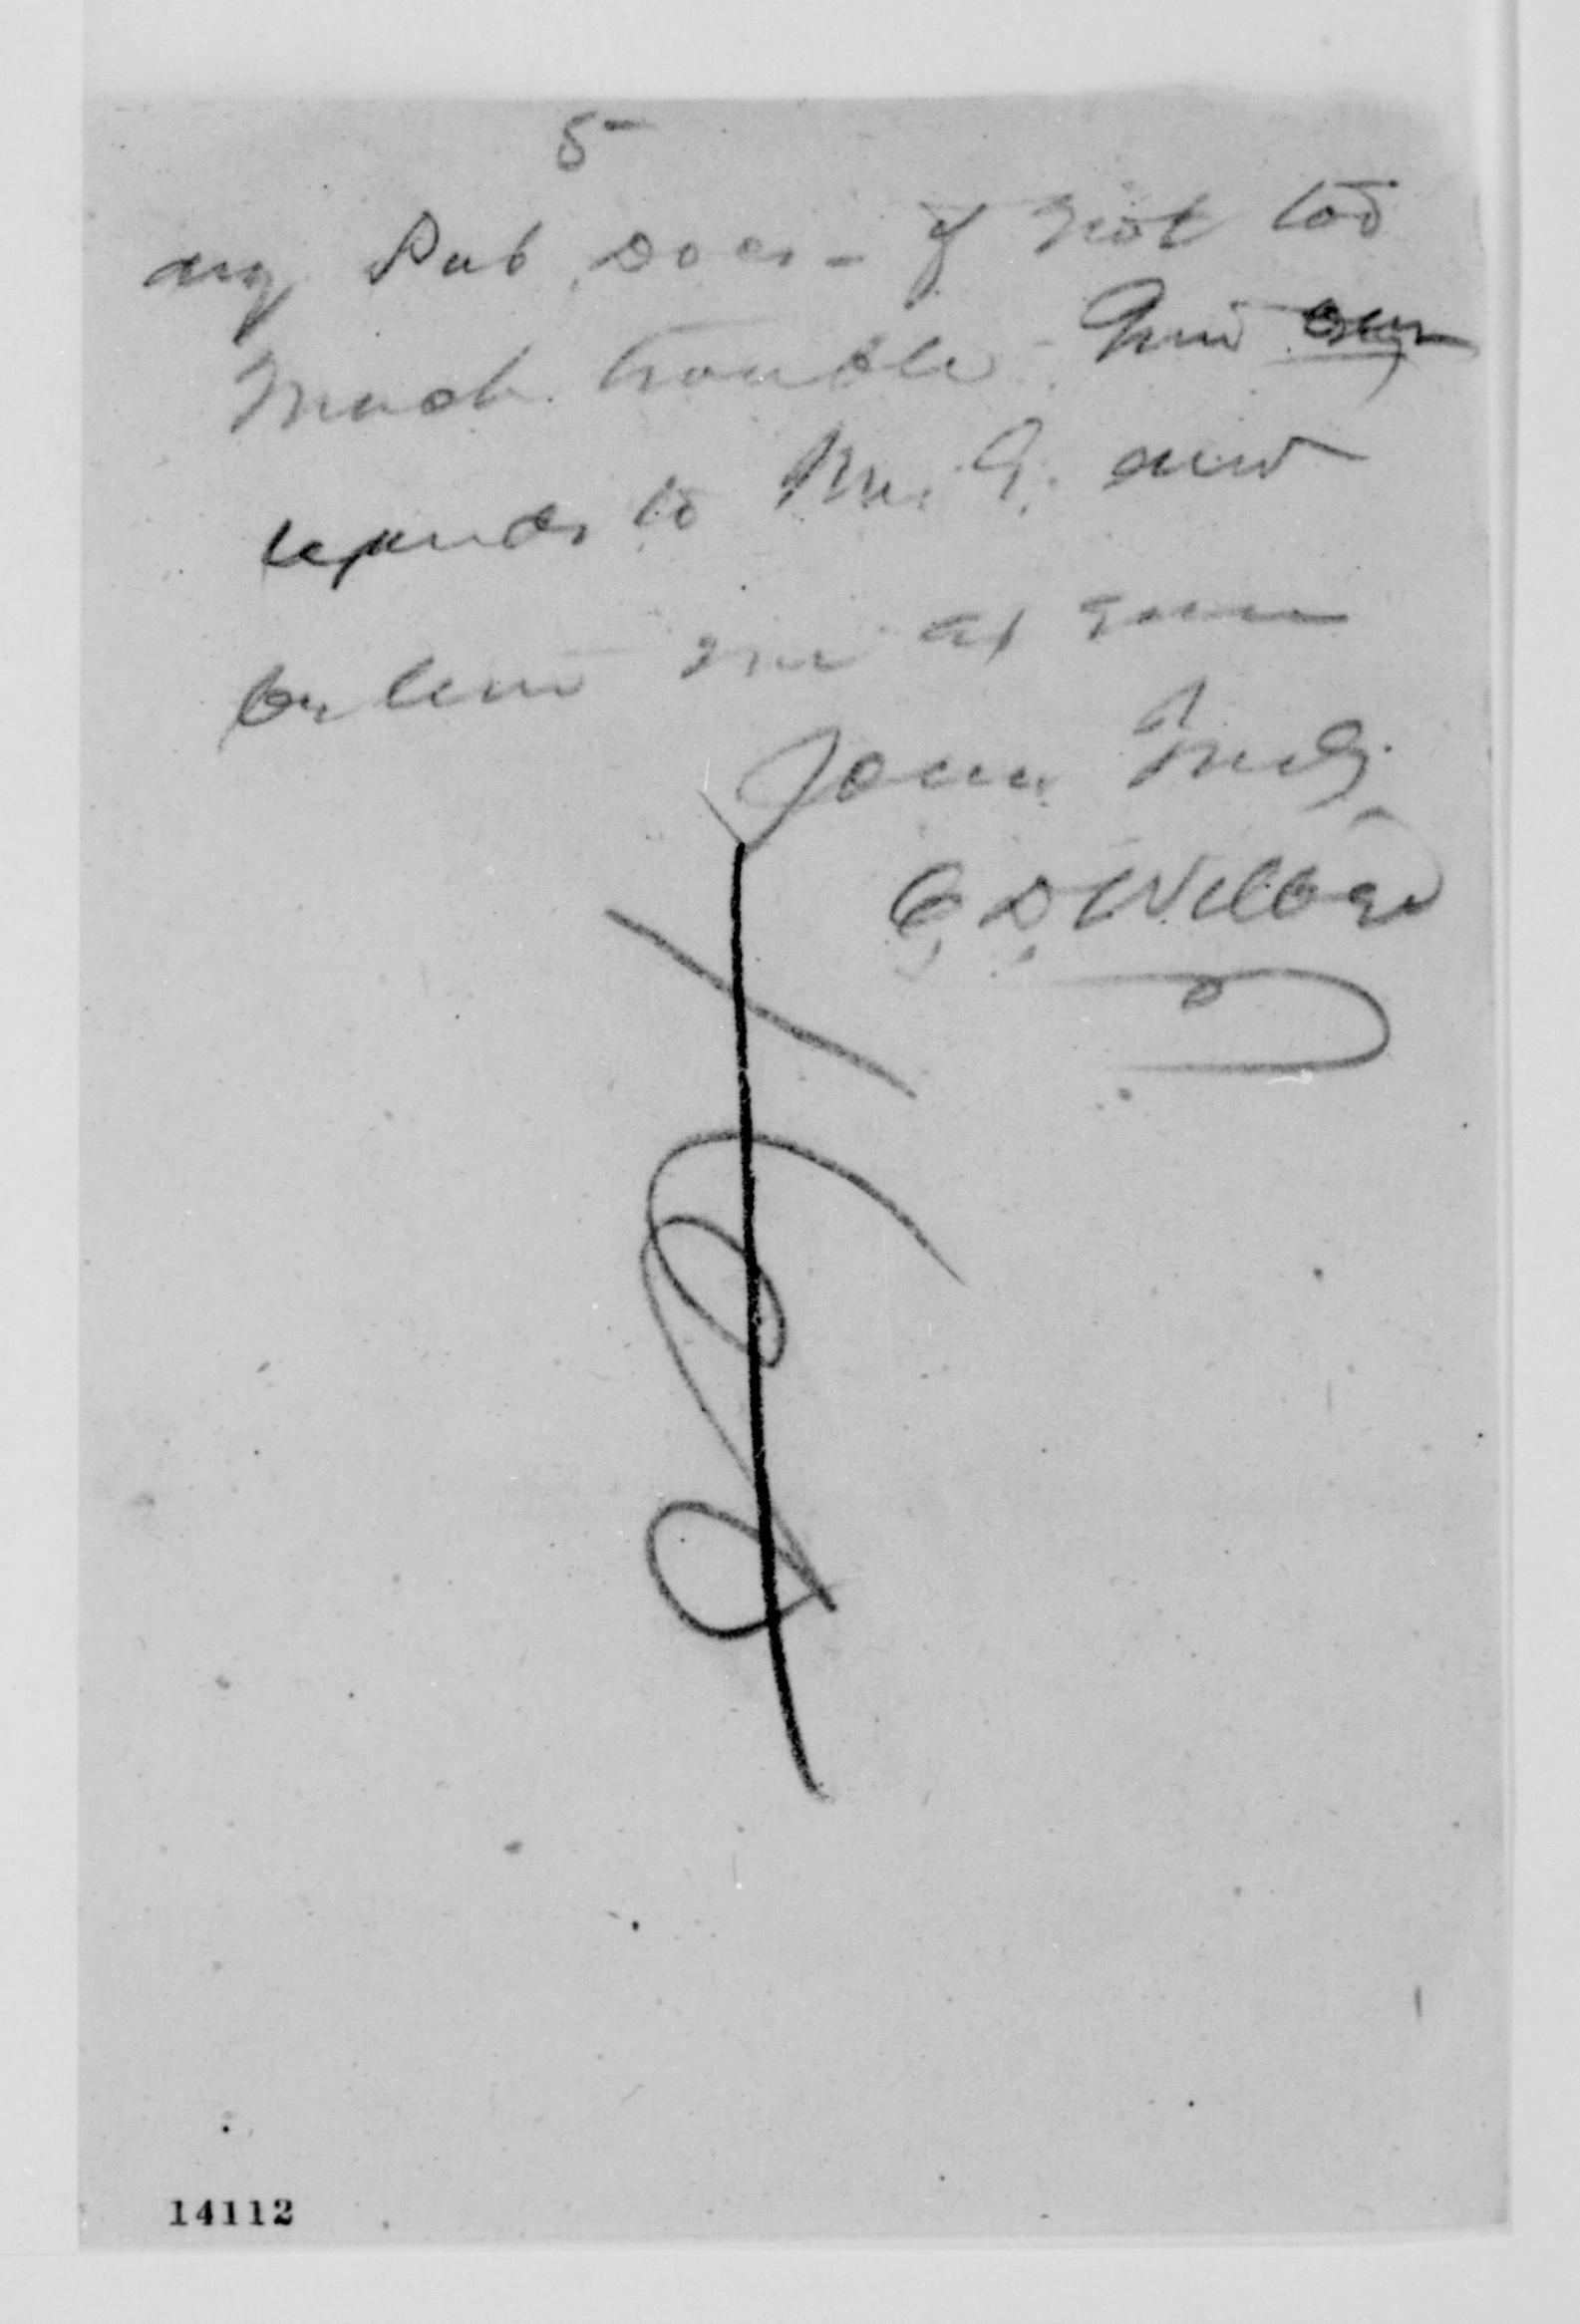 5
any Pub. Docs - if not too
Much trouble - Give our
regards to Mrs. G. and
believe me as ever
Yours Truly
C. D. Wilber
14112